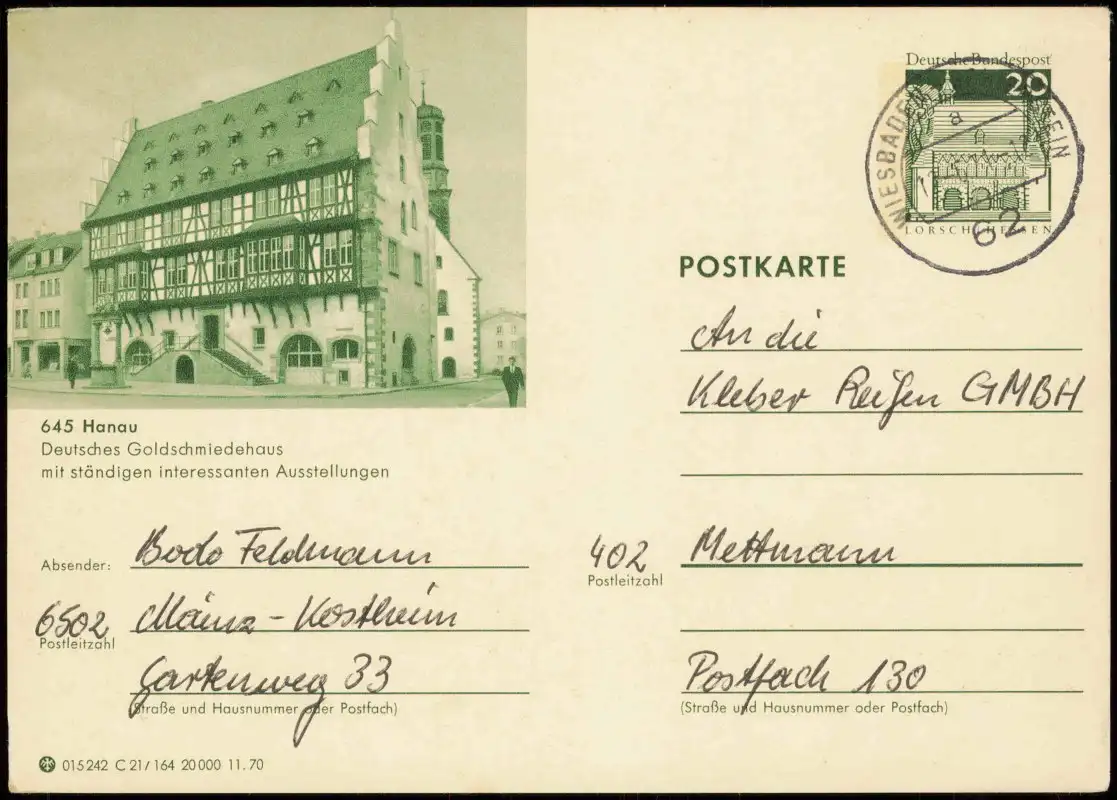 Deutsche Bundespost
20
LORSCH/HESSEN
WIESBADEN
a
62
POSTKARTE
An die
Kleber Reifen GMBH
645 Hanau
Deutsches Goldschmiedehaus
mit ständigen interessanten Ausstellungen
Absender: Bodo Feldmann
6502 Mainz-Kostheim
Postleitzahl
Gartenweg 33
(Straße und Hausnummer oder Postfach)
402 Mettmann
Postleitzahl
Postfach 130
(Straße und Hausnummer oder Postfach)
015242 C 21/164 20000 11.70